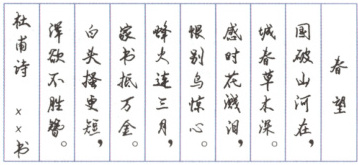 春望
国破山河在，
城春草木深。
感时花溅泪，
恨别鸟惊心。
烽火连三月，
家书抵万金。
白头搔更短，
浑欲不胜簪。
杜甫诗 ××书